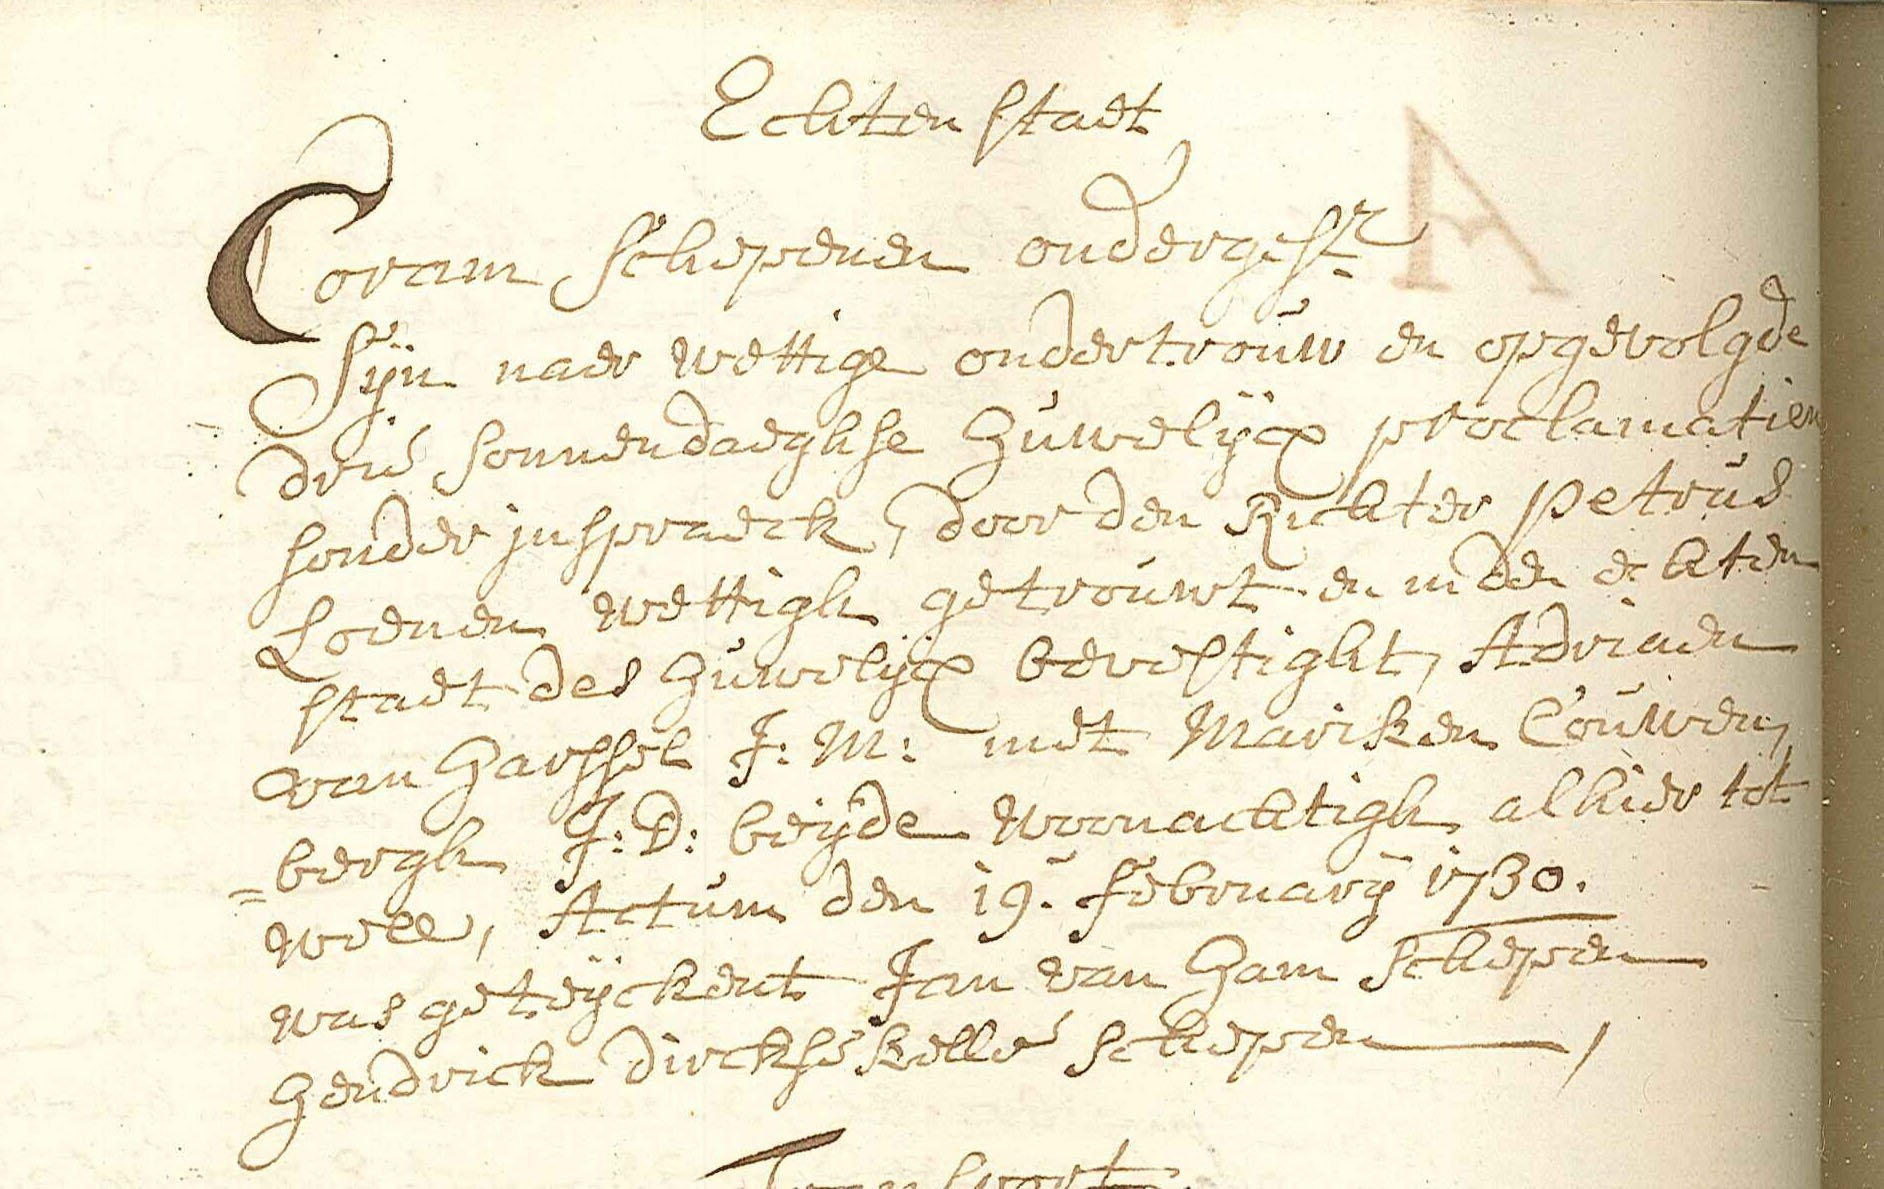 Echten staet
Coram schepenen onderges.r
sijn naer wettige ondertrouw en opgevolgde
drie sonnendaeghse huwelijcx proclamatien
sonder inspraeck, door den Richter Petrus
Loenen wettigh getrouwt en in den echten
staet des huwelijcx bevestight, Adriaen
van Harssel J: M: met Mariken Couwen,
=bergh J: D: beijde woonachtigh alhier tot
Well, Actum den 19. february 1730.
was geteijckent Jan van Ham schepen
Hendrick dirckse kelle schepen
Transport